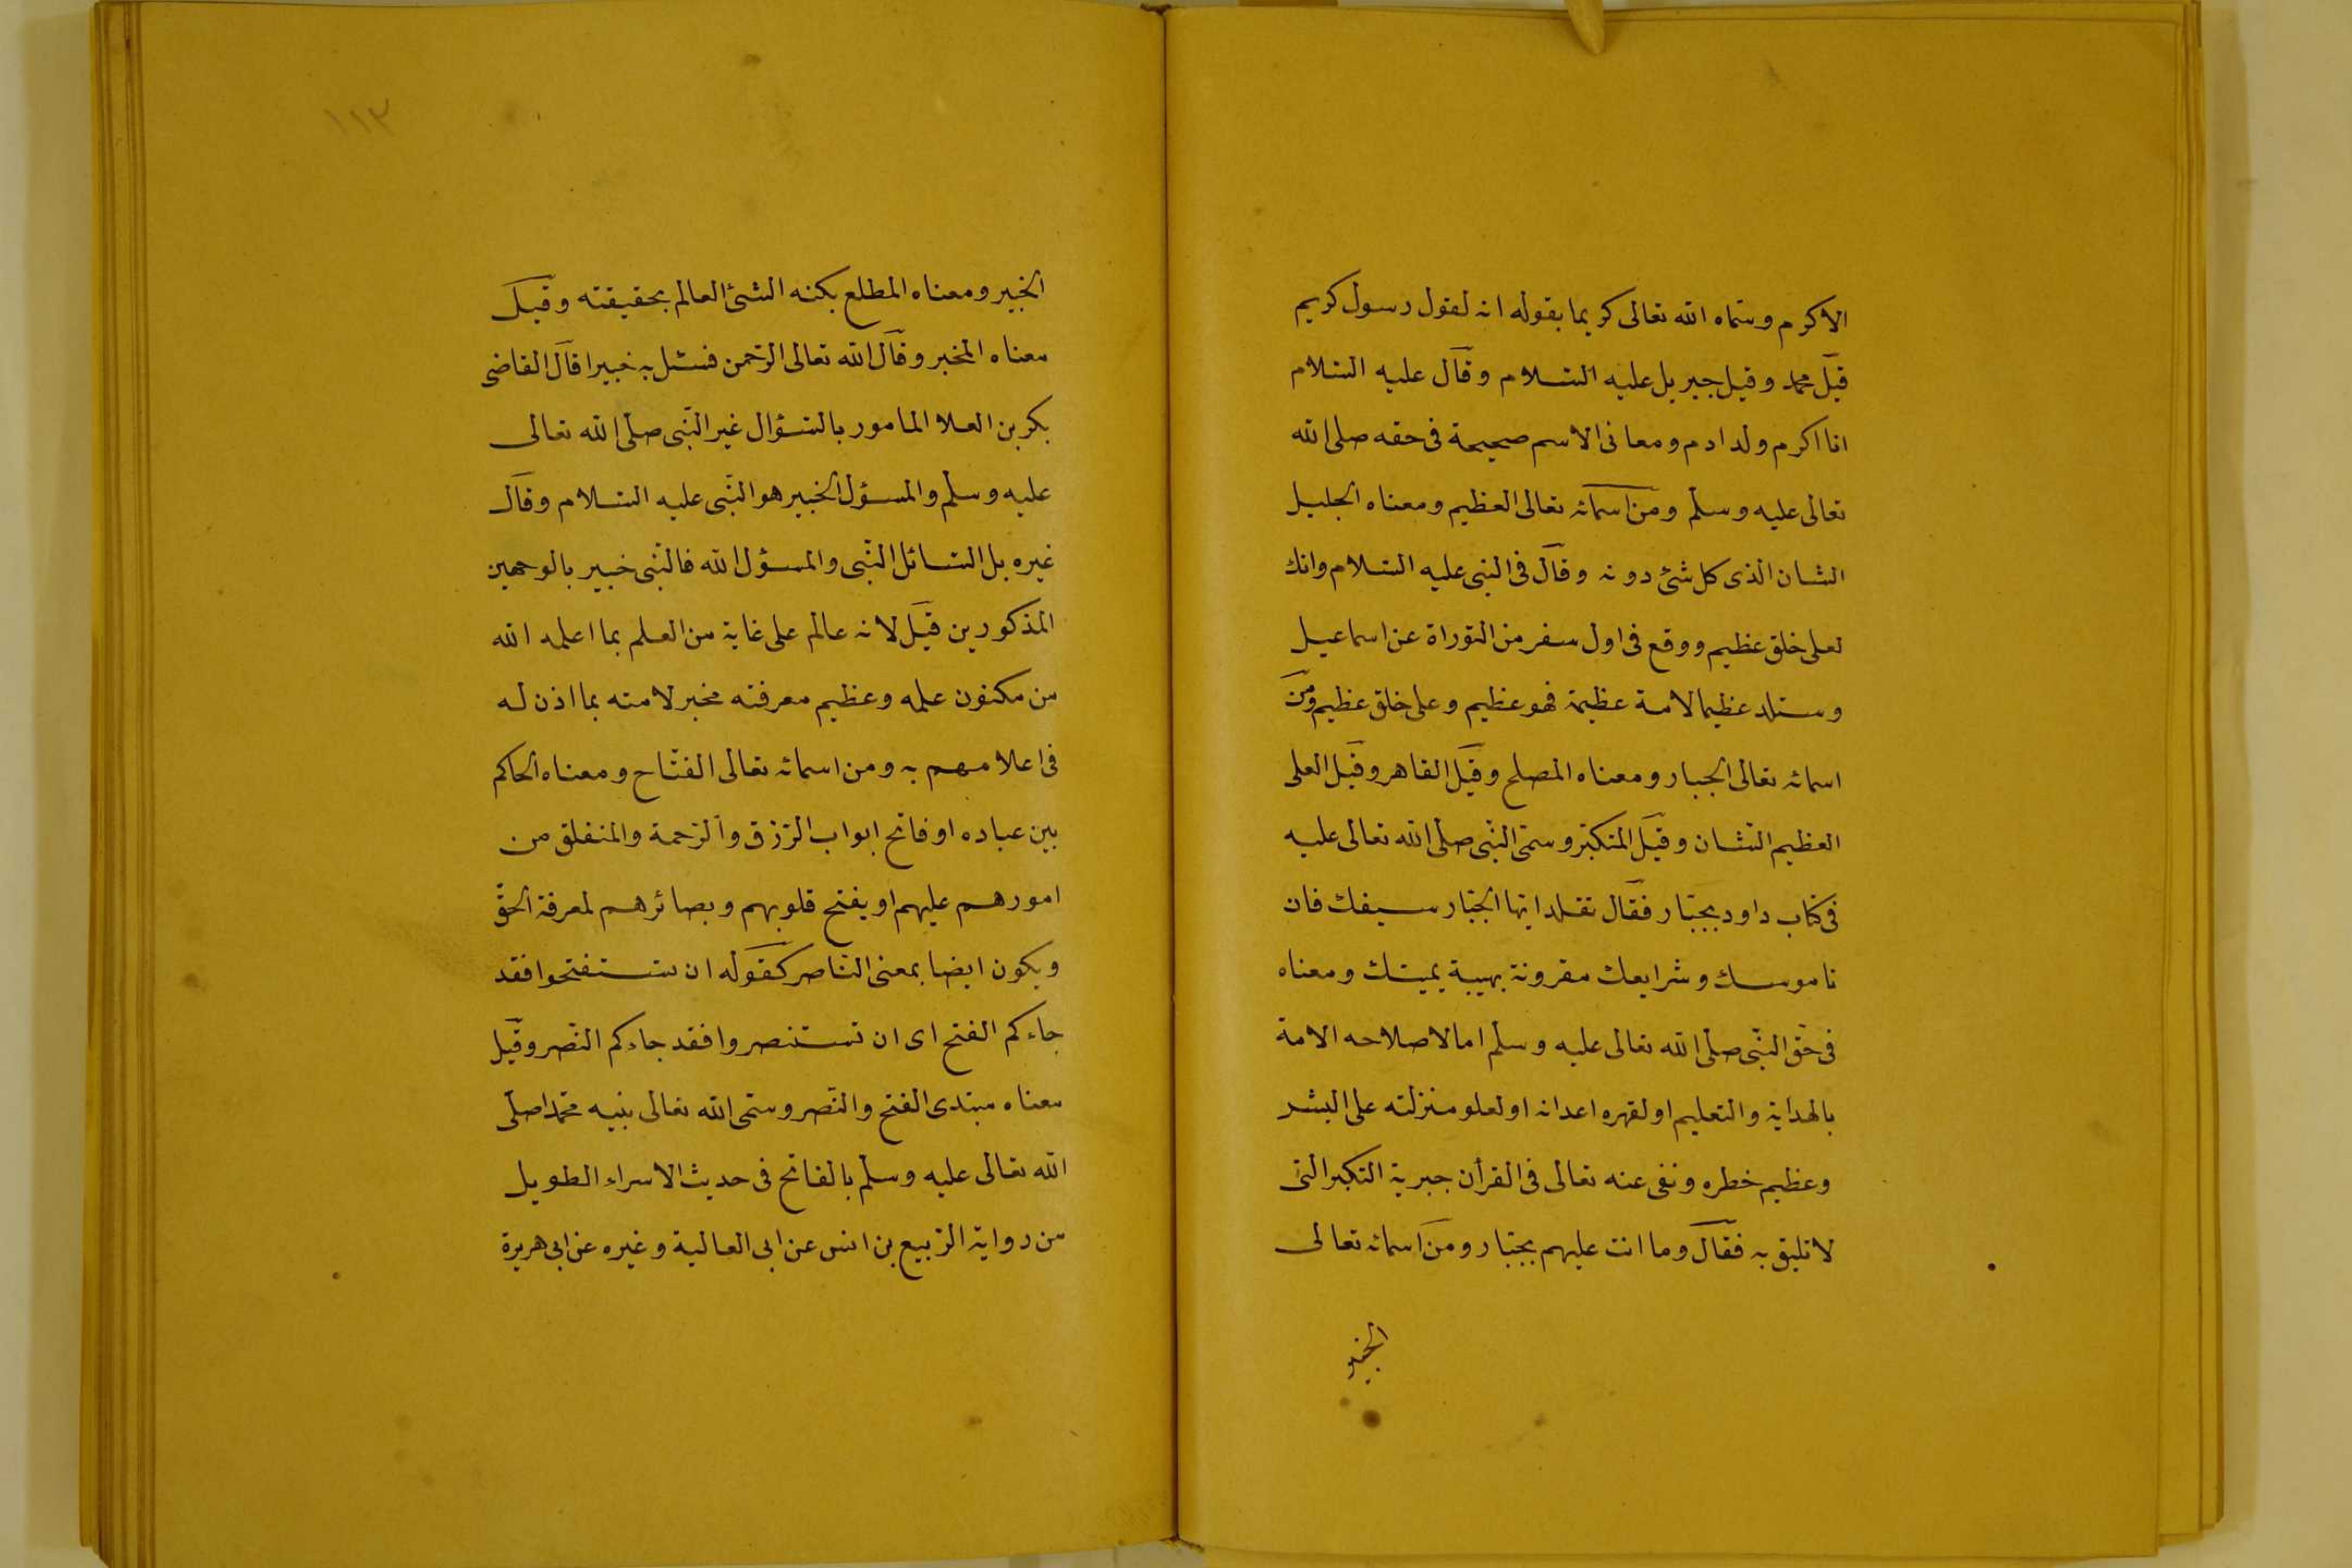 الاكرم وسماه الله تعالى كريما بقوله انه لقول رسول كريم
قيل محمد وقيل جبريل عليه السلام وقال عليه السلام
انا اكرم ولد ادم ومعانى الاسم صحيحة فى حقه صلى الله
تعالى عليه وسلم ومن اسمائه تعالى العظيم ومعناه الجليل
الشان الذى كل شئ دونه وقال فى النبى عليه السلام وانك
لعلى خلق عظيم ووقع فى اول سفر من التوراة عن اسماعيل
وستلد عظيما لامة عظيمة فهو عظيم وعلى خلق عظيم ومن
اسمائه تعالى الجبار ومعناه المصلح وقيل القاهر وقيل العلى
العظيم الشان وقيل المتكبر وسمى النبى صلى الله تعالى عليه
فى كتاب داود بجبار فقال تقلد ايها الجبار سيفك فان
ناموسك وشرايعك مقرونة بهيبة يمينك ومعناه
فى حق النبى صلى الله تعالى عليه وسلم امالا صلاحه الامة
بالهداية والتعليم او لقهره اعدائه او لعلو منزلته على البشر
وعظيم خطره ونفى عنه تعالى فى القرأن جبرية التكبر التى
لا تليق به فقال وما انت عليهم بجبار ومن اسمائه تعالى
الخبير
١١٣
الخبير ومعناه المطلع بكنه الشئ العالم بحقيقته وقيل
معناه المخبر وقال الله تعالى الرحمن فسئل به خبيرا قال القاضى
بكر بن العلا المامور بالسؤال غير النبى صلى الله تعالى
عليه وسلم والمسؤل الخبير هو النبى عليه السلام وقال
غيره بل السائل النبى والمسؤل الله فالنبى خبير بالوجهين
المذكورين قيل لانه عالم على غاية من العلم بما اعلمه الله
من مكنون علمه وعظيم معرفته مخبر لامته بما اذن له
فى اعلامهم به ومن اسمائه تعالى الفتاح ومعناه الحاكم
بين عباده او فاتح ابواب الرزق والرحمة والمنغلق من
امورهم عليهم او يفتح قلوبهم وبصائرهم لمعرفة الحق
ويكون ايضا بمعنى الناصر كقوله ان تستفتحوا فقد
جاءكم الفتح اى ان تستنصروا فقد جاءكم النصر وقيل
معناه مبتدى الفتح والنصر وسمى الله تعالى نبيه محمدا صلى
الله تعالى عليه وسلم بالفاتح فى حديث الاسراء الطويل
من رواية الربيع بن انس عن ابى العالية وغيره عن ابى هريرة